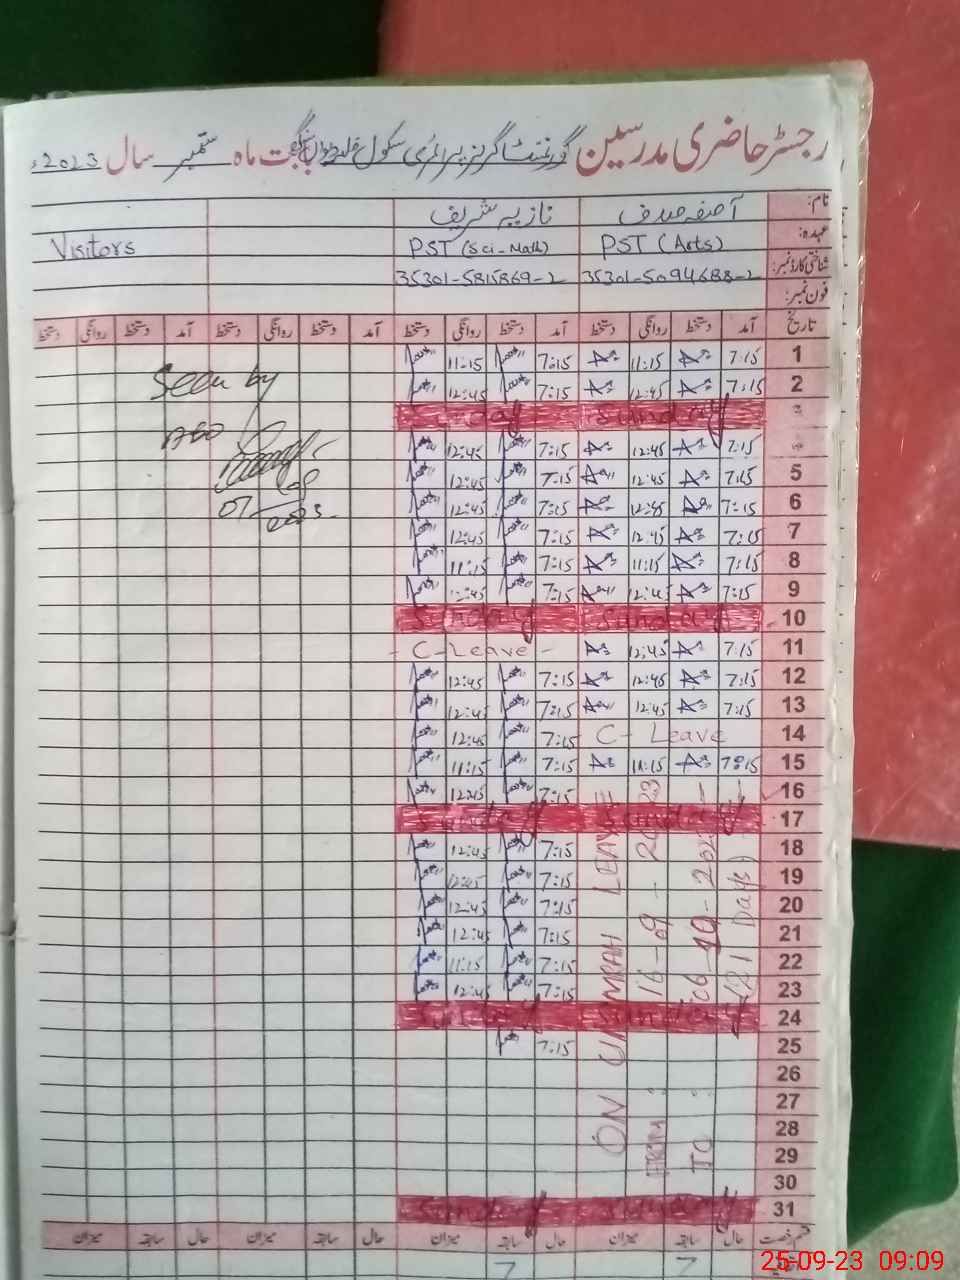 رجسٹر حاضری مدرسین گورنمنٹ گرلز پرائمری سکول بابت ماہ ستمبر سال 2023ء
نام: آصفہ صدف نازیہ شریف
عہدہ: PST (Arts) PST (Sci-Math) Visitors
شناختی کارڈ نمبر: 35301-5094688-2 35301-5815869-2
فون نمبر:
تاریخ آمد دستخط روانگی دستخط آمد دستخط روانگی دستخط آمد دستخط روانگی دستخط آمد دستخط روانگی دستخط
1 7:15 11:15 7:15 11:15
2 7:15 12:45 7:15 12:45
Sunday
7:15 12:45 7:15 12:45
5 7:15 12:45 7:15 12:45
6 7:15 12:45 7:15 12:45
7 7:15 12:45 7:15 12:45
8 7:15 11:15 7:15 11:15
9 7:15 12:45 7:15 12:45
10 Sunday Sunday
11 7:15 12:45 - C-Leave -
12 7:15 12:45 7:15 12:45
13 7:15 12:45 7:15 12:45
14 C- Leave 7:15 12:45
15 7:15 11:15 7:15 11:15
16 7:15 12:45
17 Sunday Sunday
18 7:15 12:45
19 7:15 12:45
20 7:15 12:45
21 7:15 12:45
22 7:15 11:15
23 7:15 12:45
24 Sunday Sunday
25 7:15
26
27
28
29
30
31 Sunday Sunday
ON UMRAH LEAVE
FROM : 16-09-2023
TO : 06-10-2023
(21 Days)
Seen by
AEO
07
2023
قسم رخصت حال سابقہ میزان حال سابقہ میزان حال سابقہ میزان حال سابقہ میزان
7 7
25-09-23 09:09